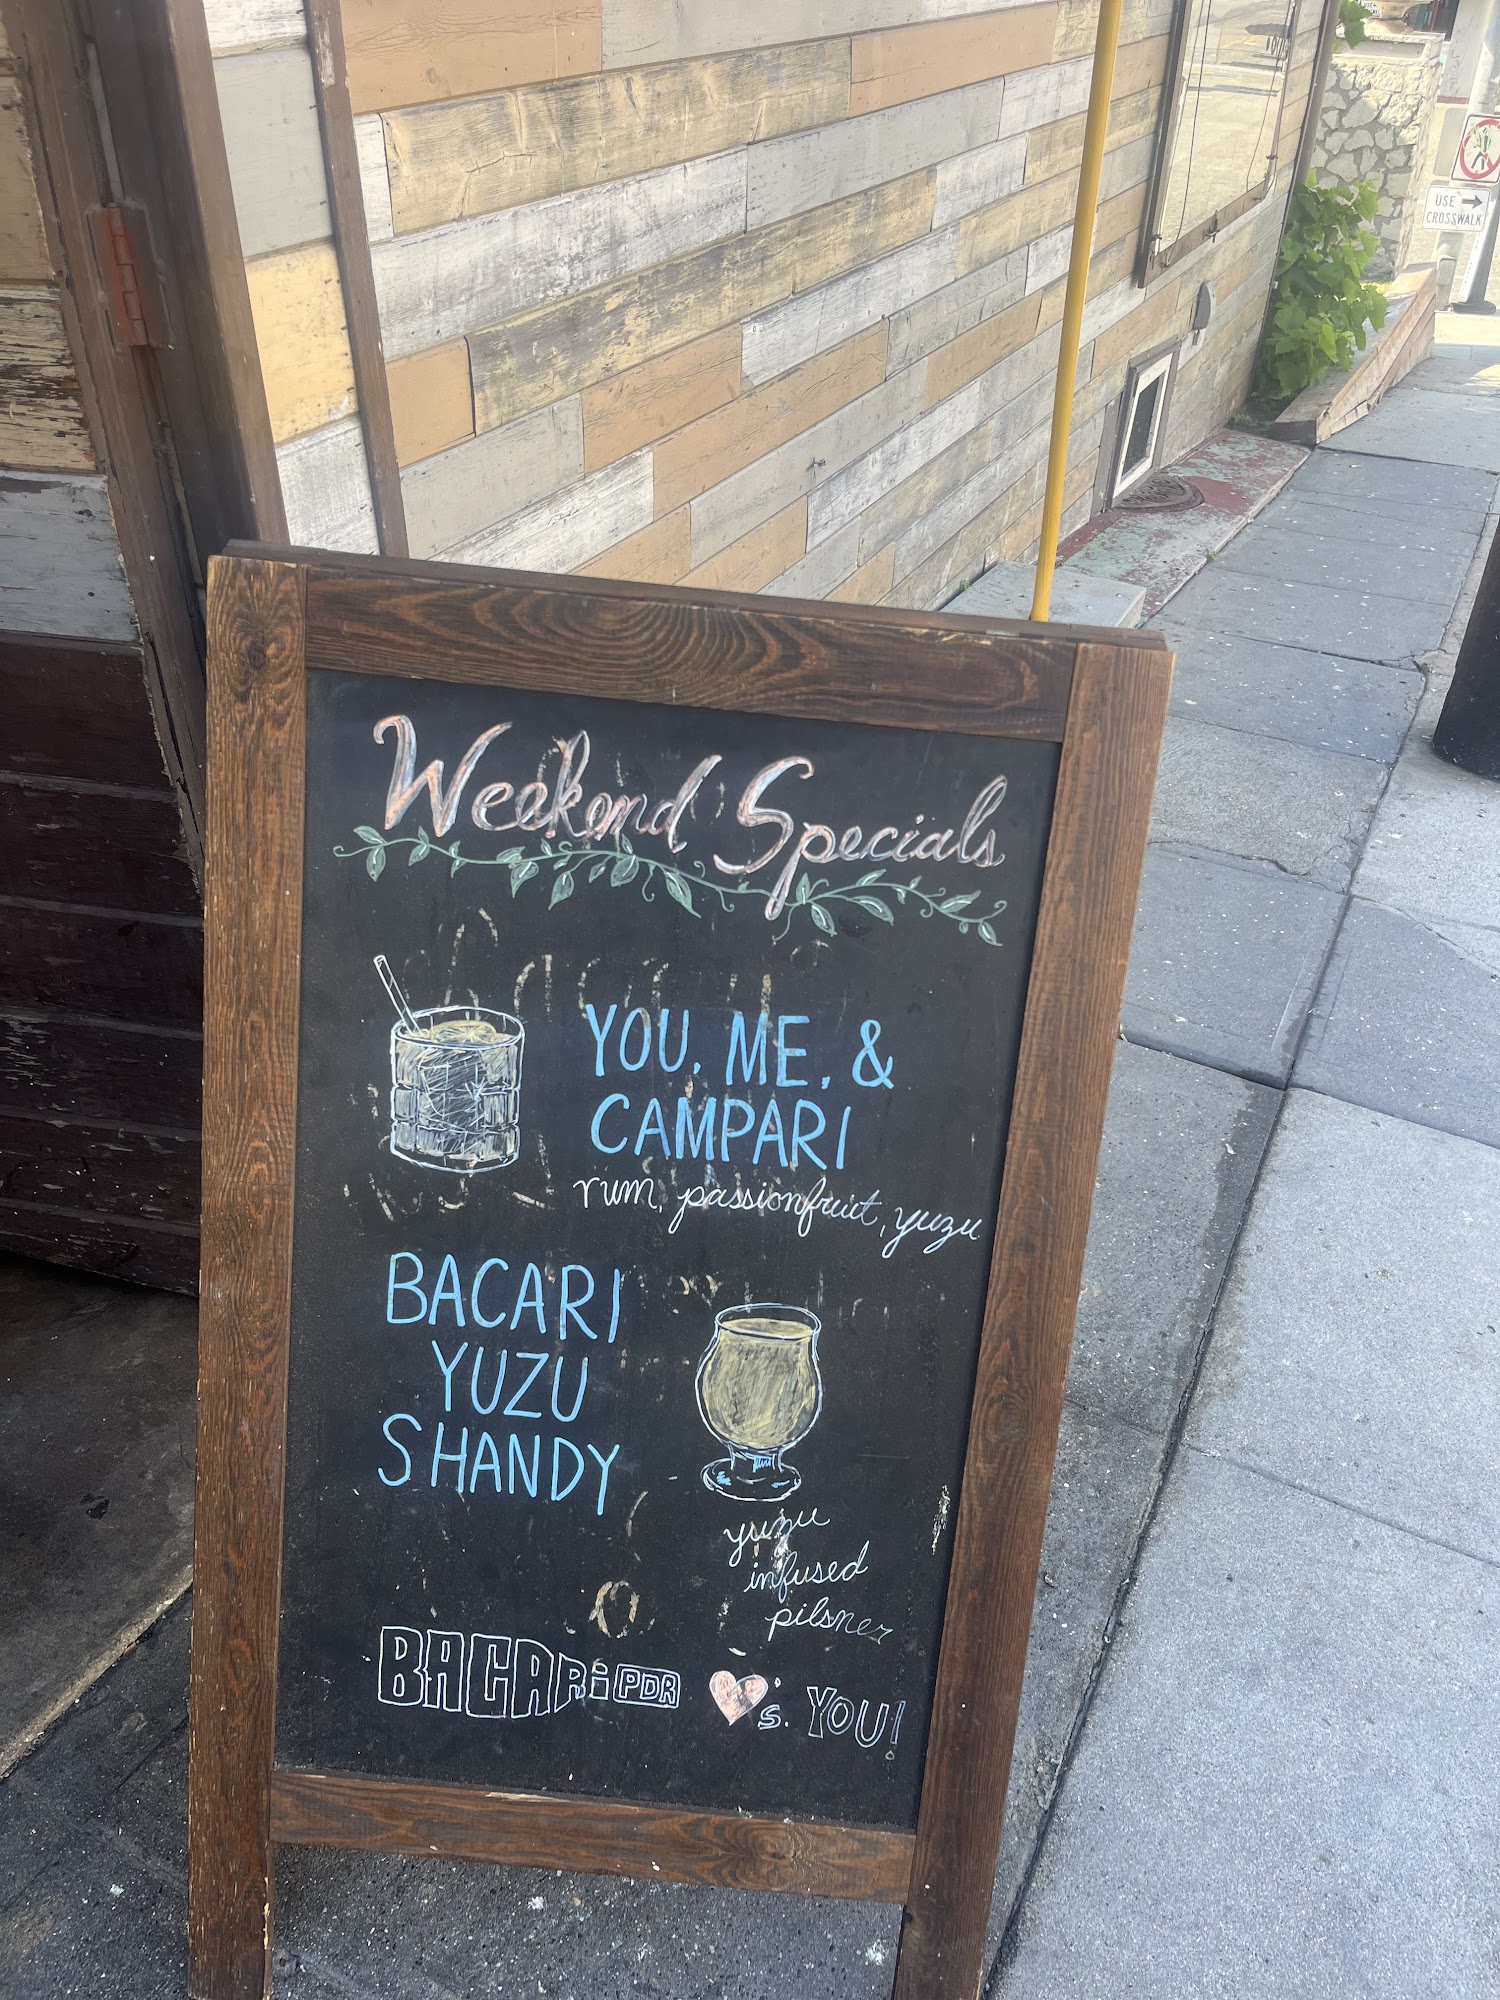 Weekend Specials
YOU, ME, &
CAMPARI
rum, passionfruit, yuzu
BACARI
YUZU
SHANDY
yuzu
infused
pilsner
BACARI PDR ♥'s. YOU!
USE →
CROSSWALK